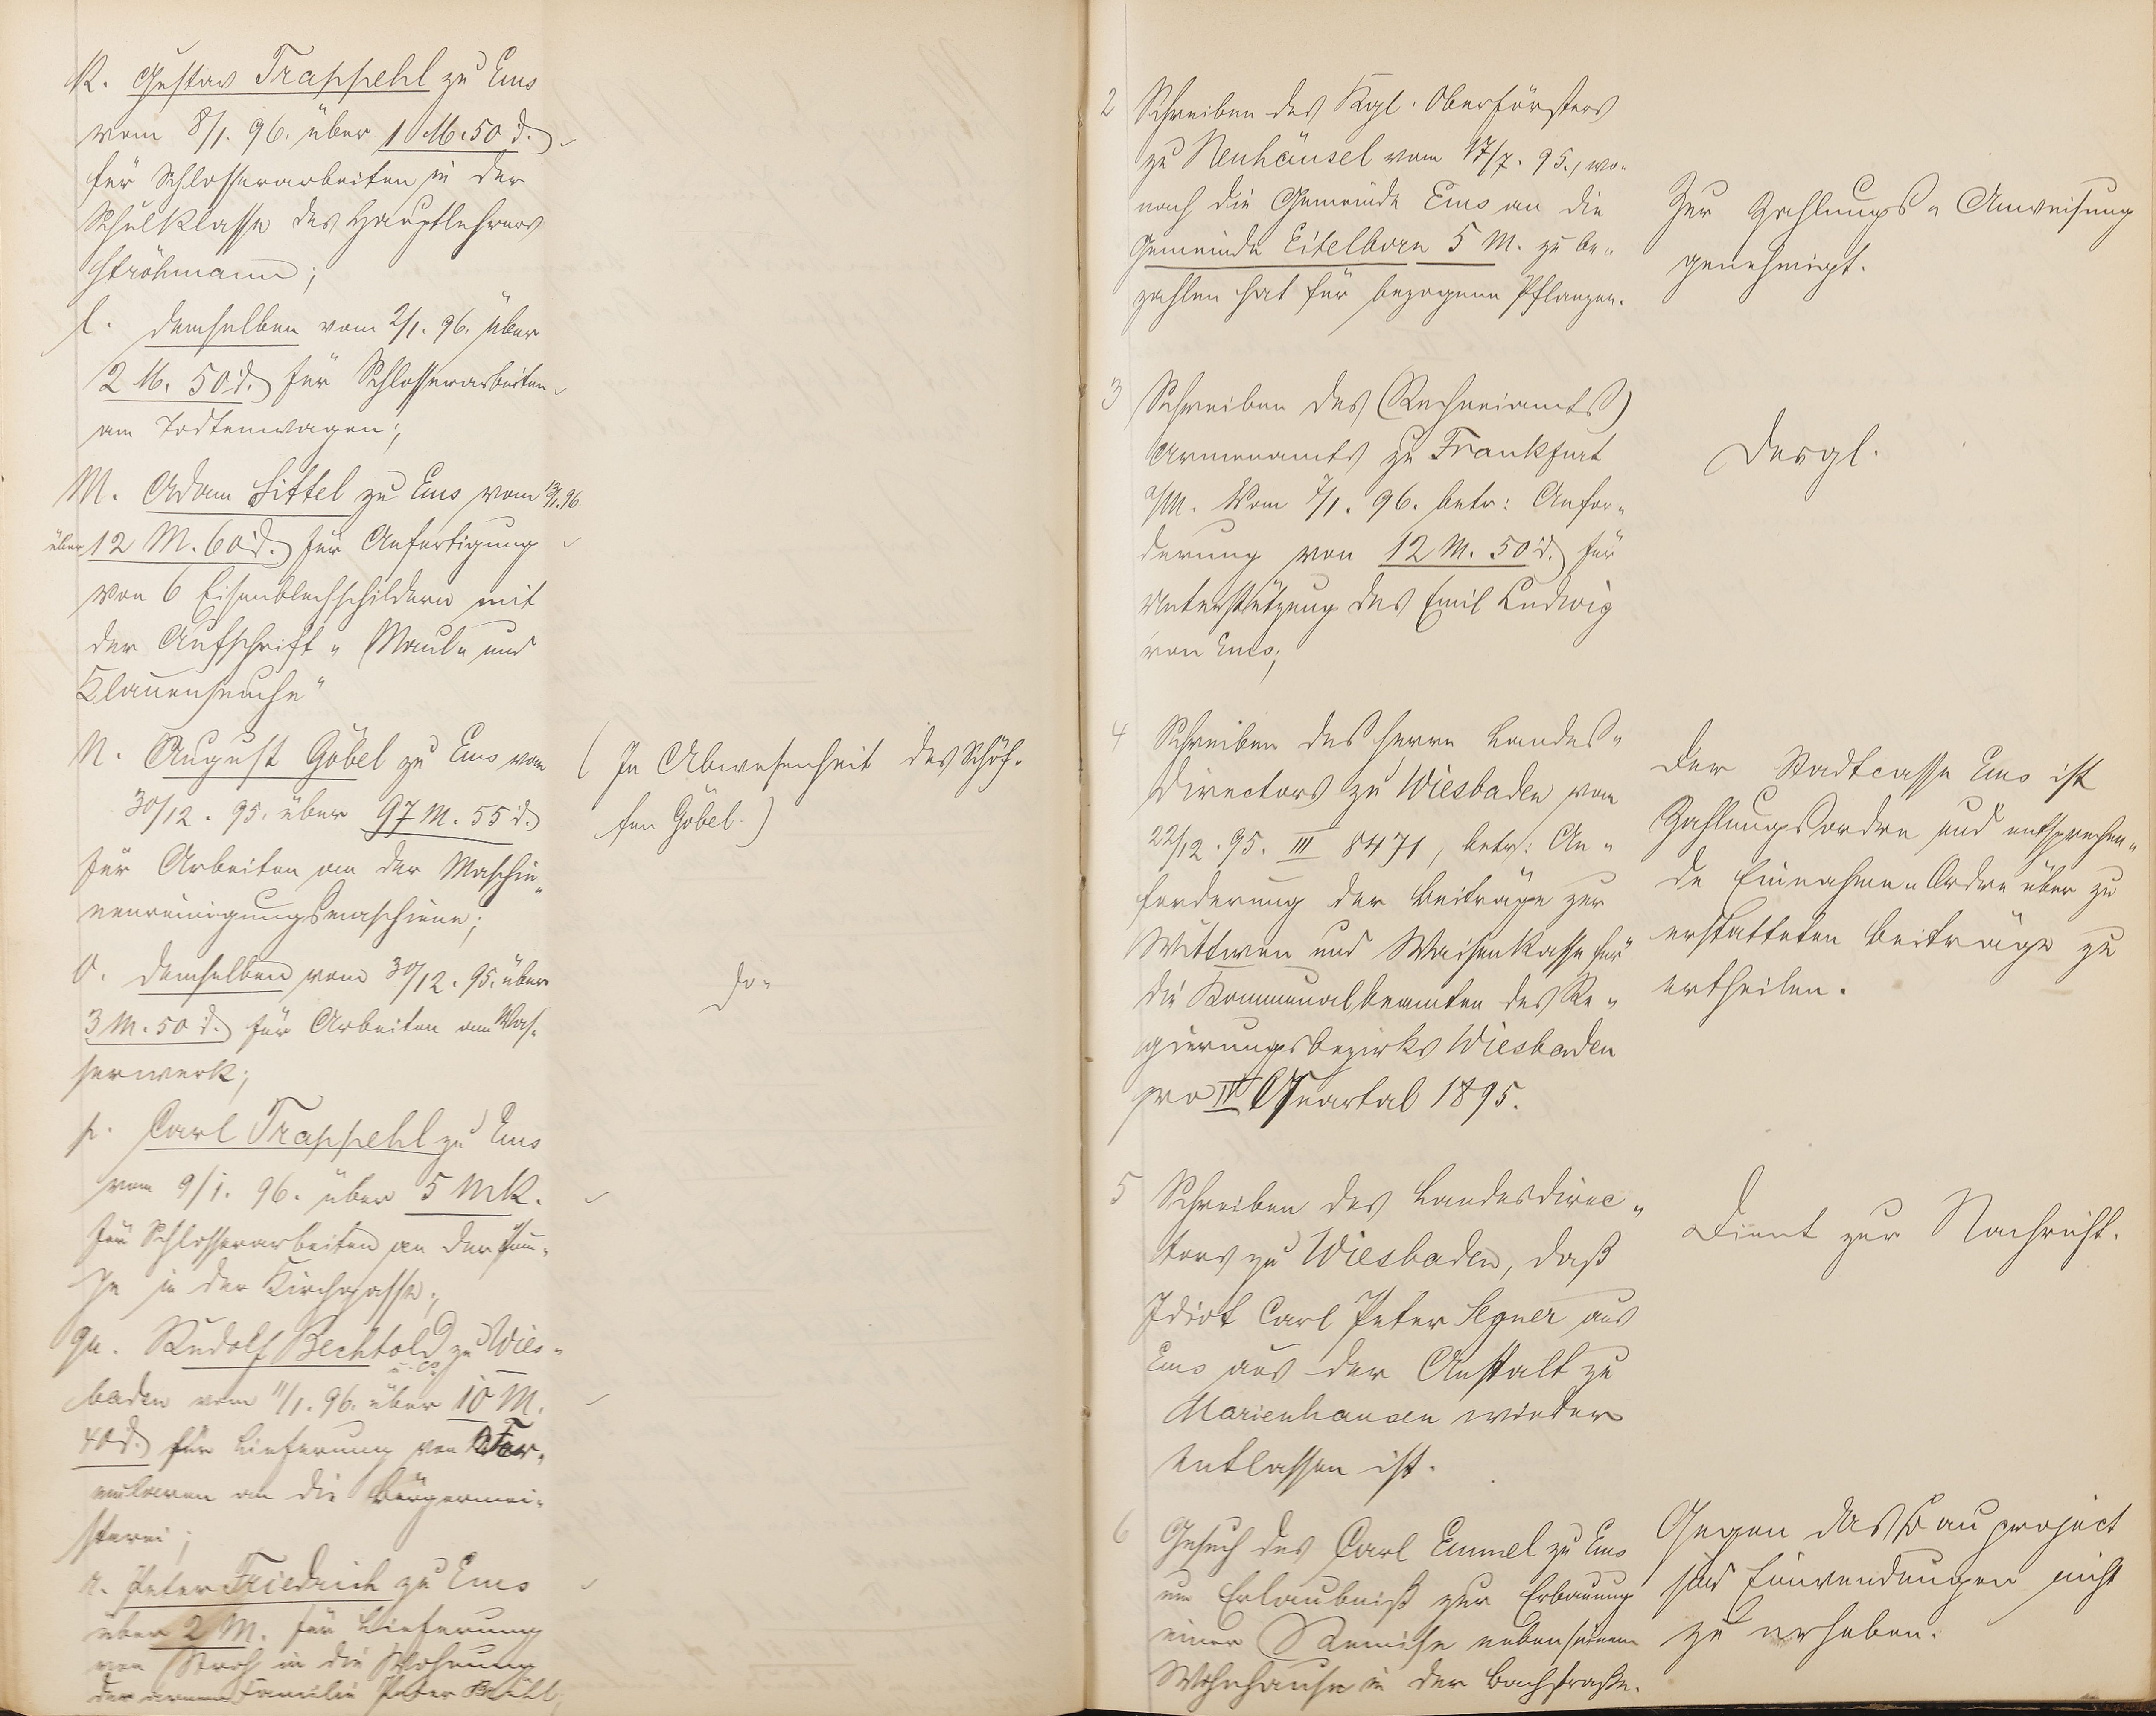 k. Gustav Trappehl zu Ems
vom 8/1. 96. über 1 M. 50 d.
für Schlosserarbeiten in der
Schulklasse des Hauptlehrers
Ströhmann;
l. demselben vom 2/1. 96. über
2 M. 50 d. für Schlosserarbeiten
am Todtenwagen;
M. Adam Sittel zu Ems vom 13/1. 96.
über 12 M. 60 d. für Anfertigung
von 6 Eisenblechschildern mit
der Aufschrift „Maul- und
Klauenseuche“
N. August Göbel zu Ems vom
30/12. 95. über 97 M. 55 d.
für Arbeiten an der Maschie-
nenreinigungsmaschiene;
O. demselben vom 30/12. 95. über
3 M. 50 d. für Arbeiten am Was-
serwerk;
p. Carl Trappehl zu Ems
vom 9/1. 96. über 5 Mk.
für Schlosserarbeiten an der Pum-
pe in der Kirchgasse;
qu. Rudolf Bechtold u. Co zu Wies-
baden vom 11/1. 96. über 10 M.
40 d. für Lieferung von For-
mularen an die Bürgermei-
sterei;
r. Peter Friedrich zu Ems
über 2 M. für Lieferung
von Stroh in die Wohnung
der armen Familie Peter Brühl,
(In Abwesenheit des Schöf-
fen Göbel.)
do-
2 Schreiben des Kgl. Oberförsters
zu Neuhäusel vom 17/7. 95., wo-
nach die Gemeinde Ems an die
Gemeinde Eitelborn 5 M. zu be-
zahlen hat für bezogene Pflanzen.
Zur Zahlungs-Anweisung
genehmigt.
3 Schreiben des (Rechneiamts)
Armenamts zu Frankfurt
a/M. vom 7/1. 96. betr: Anfor-
derung von 12 M. 50 d. für
Unterstützung des Emil Ludwig
von Ems;
Desgl.
4 Schreiben des Herrn Landes-
directors zu Wiesbaden vom
22/12. 95. III 8471, betr: An-
forderung der Beiträge zur
Wittwen und Waisenkasse für
die Kommunalbeamten des Re-
gierungsbezirks Wiesbaden
pro IV Quartal 1895.
Der Stadtcasse Ems ist
Zahlungsordre und entsprechen-
de Einnahme-Ordre über zu
erstatteten Beiträge zu
ertheilen.
5 Schreiben des Landesdirec-
tors zu Wiesbaden, daß
Idiot Carl Peter Segner aus
Ems aus der Anstalt zu
Marienhausen wieder
entlassen ist.
Dient zur Nachricht.
6 Gesuch des Carl Emmel zu Ems
um Erlaubniß zur Erbauung
einer Remise neben seinem
Wohnhause in der Bachstraße.
Gegen das Bauproject
sind Einwendungen nicht
zu erheben.